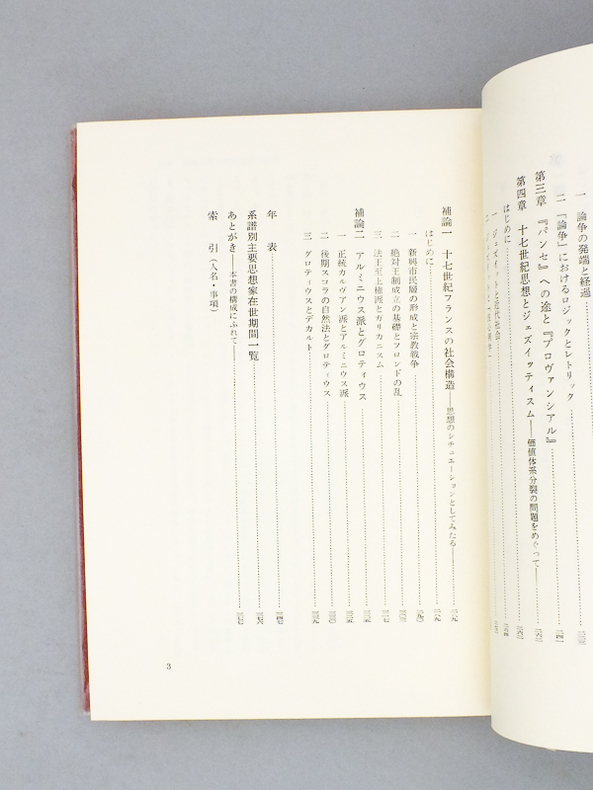 一 論争の発端と経過
二 「論争」におけるロジックとレトリック
第三章 『パンセ』への途と『プロヴァンシアル』
第四章 十七世紀思想とジェズイッティスム――価値体系分裂の問題をめぐって――
はじめに
一 ジェズイットと近代社会
補論一 十七世紀フランスの社会構造――思想のシチュエーションとしてみたる――
はじめに
一 新興市民層の形成と宗教戦争
二 絶対王制成立の基礎とフロンドの乱
三 法王至上権派とガリカニスム
補論二 アルミニウス派とグロティウス
一 正統カルヴァン派とアルミニウス派
二 後期スコラの自然法とグロティウス
三 グロティウスとデカルト
年表
系譜別主要思想家在世期間一覧
あとがき――本書の構成にふれて――
索引(人名・事項)
3